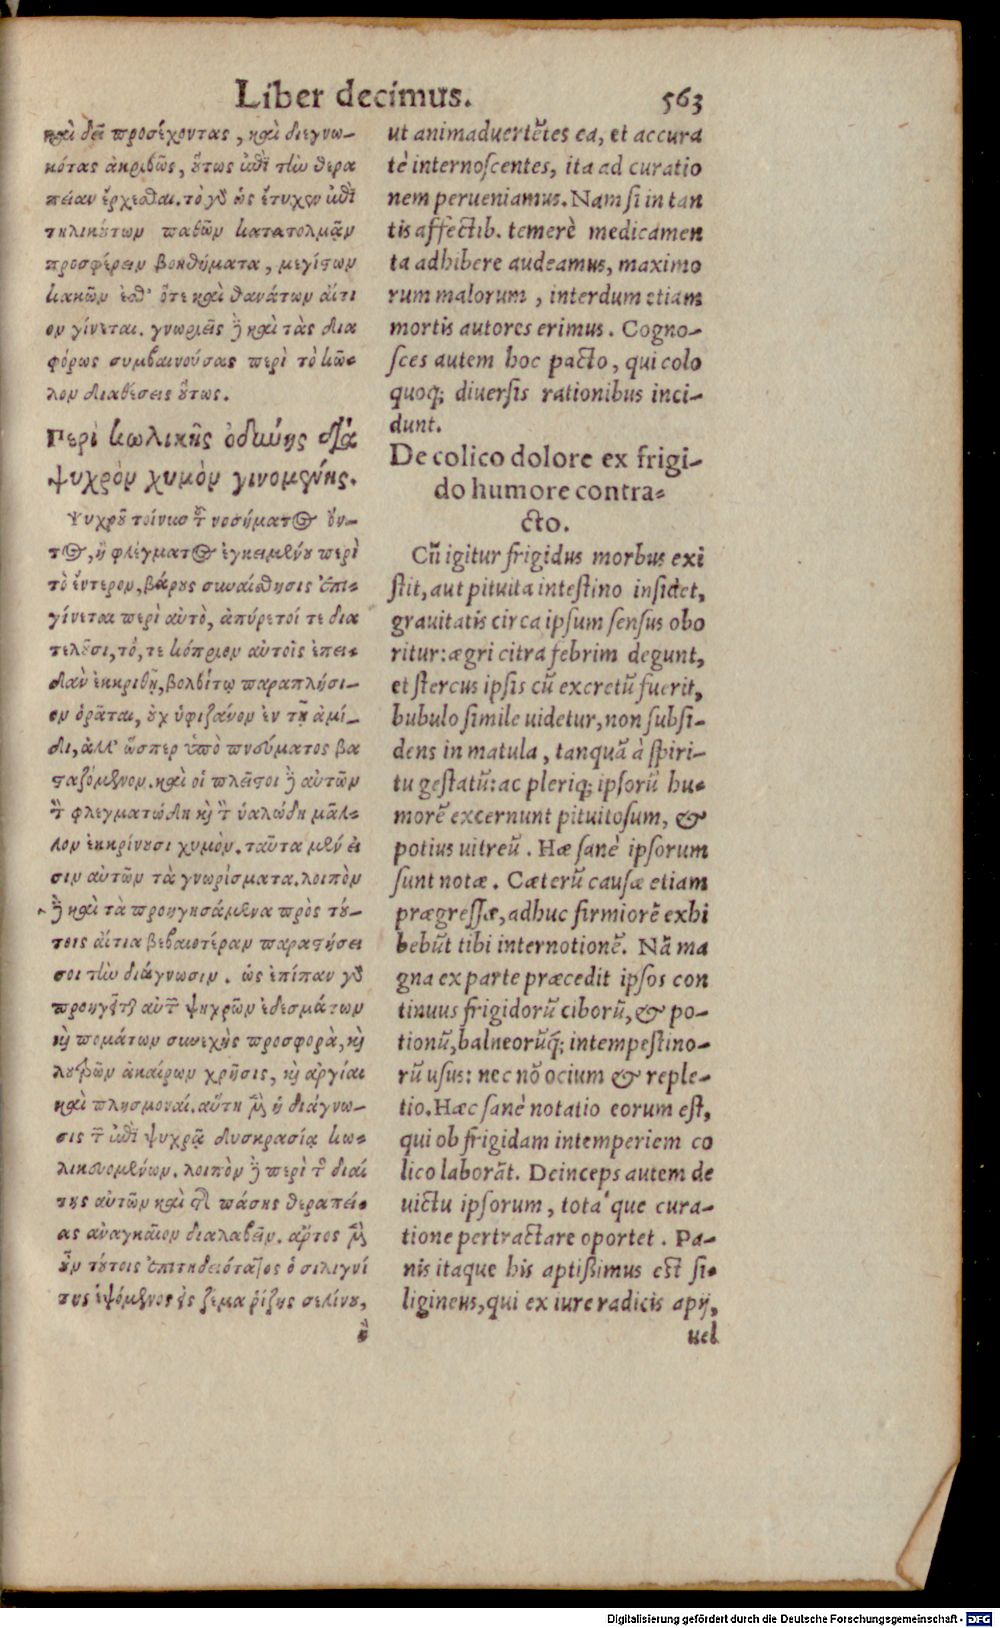 Liber decimus. 563
καὶ δεῖ προσέχοντας, καὶ διεγνω-
κότας ἀκριβῶς, οὕτως ἐπὶ τὴν θερα
πείαν ἔρχεσθαι. τὸ γὰρ ὡς ἔτυχεν ἐπὶ
τηλικούτων παθῶν κατατολμᾷν
προσφέρειν βοηθήματα, μεγίστων
κακῶν ἐσθ' ὅτε καὶ θανάτων αἴτι
ον γίνεται. γνωριεῖς δὲ καὶ τὰς δια
φόρως συμβαινούσας περὶ τὸ κῶ-
λον διαθέσεις οὕτως.
Περὶ κωλικῆς ὀδύνης διὰ
ψυχρὸν χυμὸν γινομένης.
Ψυχροῦ τοίνυν τοῦ νοσήματος ὄν-
τος, ἢ φλέγματος ἐγκειμένου περὶ
τὸ ἔντερον, βάρους συναίσθησις ἐπι-
γίνεται περὶ αὐτὸ, ἀπύρετοί τε δια
τελοῦσι, τό, τε κόπριον αὐτοῖς ἐπει-
δὰν ἐκκριθῇ, βολβίτῳ παραπλήσι-
ον ὁρᾶται, οὐχ ὑφιζάνον ἐν τῇ ἀμί-
δι, ἀλλ' ὥσπερ ὑπὸ πνεύματος βα
σταζόμενον. καὶ οἱ πλεῖστοι δὲ αὐτῶν
τὸν φλεγματώδη καὶ τὸν ὑαλώδη μᾶλ-
λον ἐκκρίνουσι χυμὸν. ταῦτα μέν εἰ
σιν αὐτῶν τὰ γνωρίσματα. λοιπὸν
δὲ καὶ τὰ προηγησάμενα πρὸς τού-
τοις αἴτια βεβαιοτέραν παραστήσει
σοι τὴν διάγνωσιν. ὡς ἐπίπαν γὰρ
προηγεῖται αὐτῶν ψυχρῶν ἐδεσμάτων
καὶ πομάτων συνεχὴς προσφορὰ, καὶ
λουτρῶν ἀκαίρων χρῆσις, καὶ ἀργίαι
καὶ πλησμοναί. αὕτη μὲν ἡ διάγνω-
σις τῶν ἐπὶ ψυχρᾷ δυσκρασίᾳ κω-
λικευομένων. λοιπὸν δὲ περὶ τῆς διαί
της αὐτῶν καὶ τῆς πάσης θεραπεί-
ας ἀναγκαῖον διαλαβεῖν. ἄρτος μὲν
οὖν τούτοις ἐπιτηδειότατος ὁ σιλιγνί
της ἑψόμενος εἰς ζέμα ῥίζης σελίνου,
ἢ
ut animaduertētes ea, et accura
tè internoscentes, ita ad curatio
nem perueniamus. Nam si in tan
tis affectib. temerè medicamen
ta adhibere audeamus, maximo
rum malorum, interdum etiam
mortis autores erimus. Cogno-
sces autem hoc pacto, qui colo
quoq; diuersis rationibus inci-
dunt.
De colico dolore ex frigi-
do humore contra-
cto.
Cū igitur frigidus morbus exi
stit, aut pituita intestino insidet,
grauitatis circa ipsum sensus obo
ritur: ægri citra febrim degunt,
et stercus ipsis cū excretū fuerit,
bubulo simile uidetur, non subsi-
dens in matula, tanquā à spiri-
tu gestatū: ac pleriq; ipsorū hu-
morē excernunt pituitosum, &
potius uitreū. Hæ sanè ipsorum
sunt notæ. Cæterū causæ etiam
prægressæ, adhuc firmiorē exhi
bebūt tibi internotionē. Nā ma
gna ex parte præcedit ipsos con
tinuus frigidorū ciborū, & po-
tionū, balneorūq́; intempestino-
rū usus: nec nō ocium & reple-
tio. Hæc sanè notatio eorum est,
qui ob frigidam intemperiem co
lico laborāt. Deinceps autem de
uictu ipsorum, tota'que cura-
tione pertractare oportet. Pa-
nis itaque his aptißimus est si-
ligineus, qui ex iure radicis apij,
uel
Digitalisierung gefördert durch die Deutsche Forschungsgemeinschaft - DFG